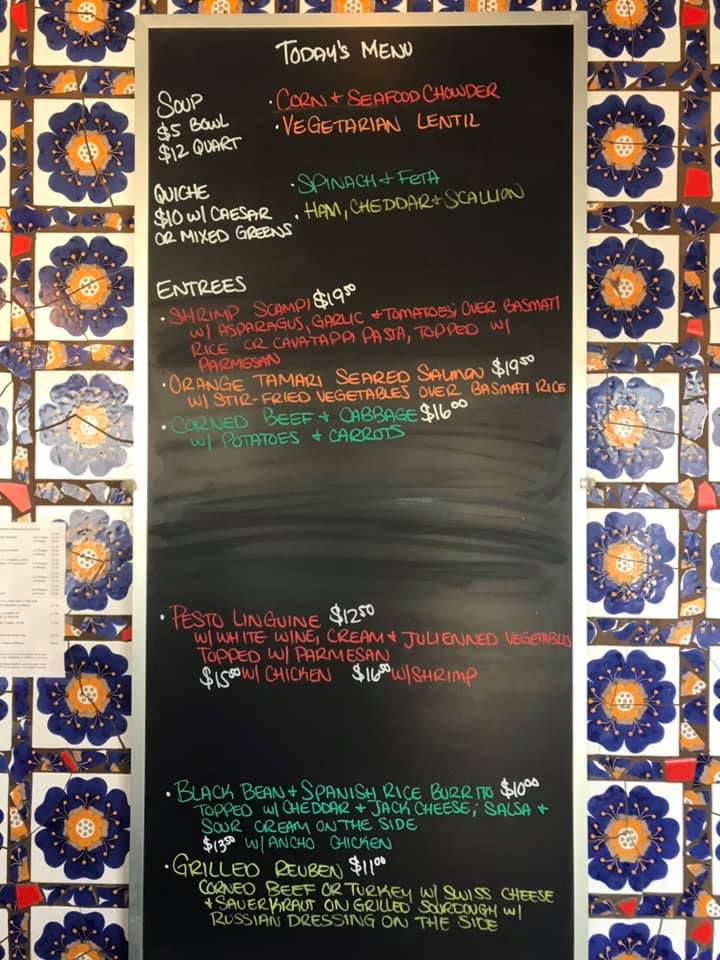 TODAY'S MENU
SOUP
$5 BOWL
$12 QUART
· CORN + SEAFOOD CHOWDER
· VEGETARIAN LENTIL
QUICHE
$10 W/ CAESAR
OR MIXED GREENS
· SPINACH + FETA
· HAM, CHEDDAR + SCALLION
ENTREES
· SHRIMP SCAMPI $19.50
W/ ASPARAGUS, GARLIC + TOMATOES; OVER BASMATI
RICE OR CAVATAPPI PASTA, TOPPED W/
PARMESAN
· ORANGE TAMARI SEARED SALMON $19.50
W/ STIR-FRIED VEGETABLES OVER BASMATI RICE
· CORNED BEEF + CABBAGE $16.00
W/ POTATOES + CARROTS
· PESTO LINGUINE $12.50
W/ WHITE WINE, CREAM + JULIENNED VEGETABLES
TOPPED W/ PARMESAN
$15.00 W/ CHICKEN $16.50 W/ SHRIMP
· BLACK BEAN + SPANISH RICE BURRITO $10.00
TOPPED W/ CHEDDAR + JACK CHEESE; SALSA +
SOUR CREAM ON THE SIDE
$13.50 W/ ANCHO CHICKEN
· GRILLED REUBEN $11.00
CORNED BEEF OR TURKEY W/ SWISS CHEESE
+ SAUERKRAUT ON GRILLED SOURDOUGH W/
RUSSIAN DRESSING ON THE SIDE